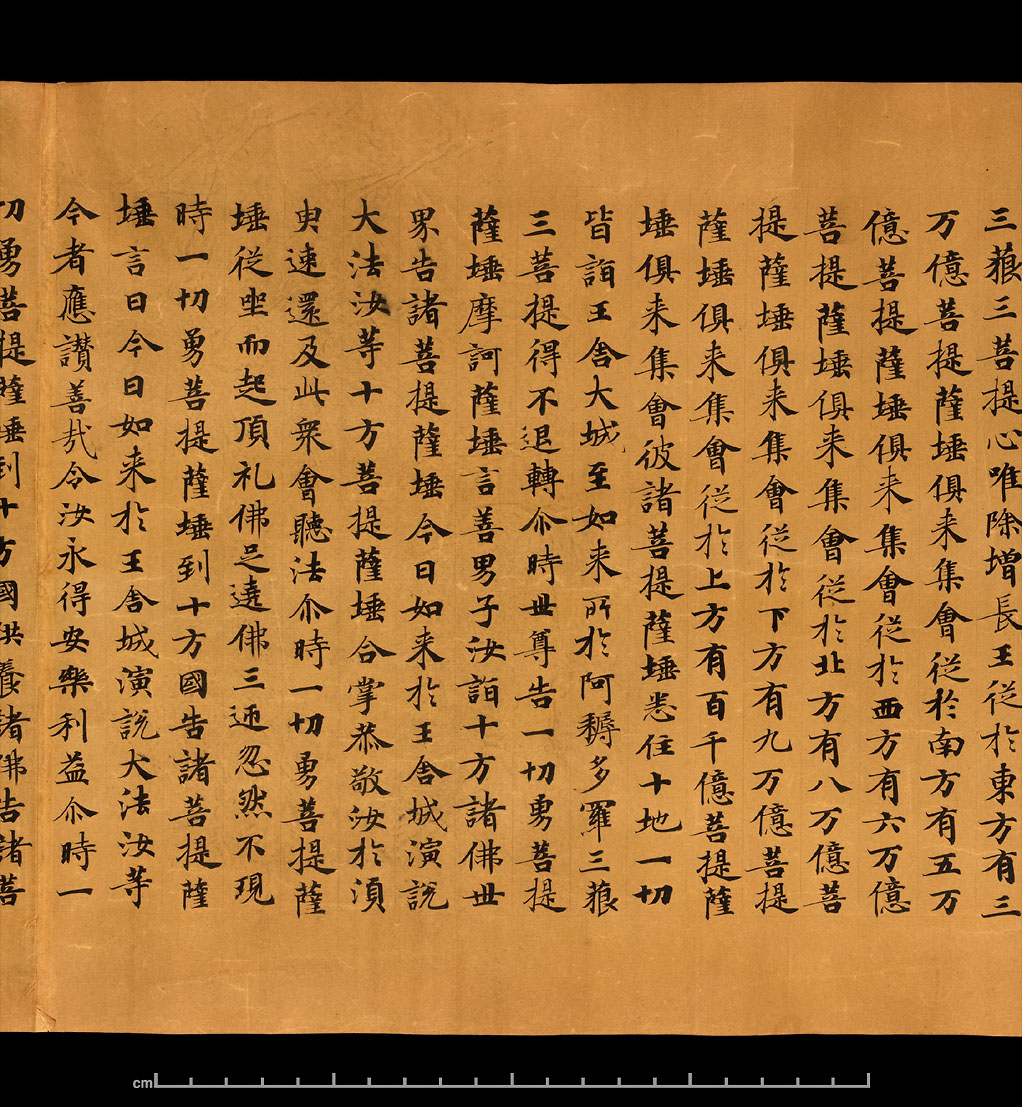 三藐三菩提心唯除增長王從於東方有三
万億菩提薩埵俱来集會從於南方有五万
億菩提薩埵俱来集會從於西方有六万億
菩提薩埵俱来集會從於北方有八万億菩
提薩埵俱来集會從於下方有九万億菩提
薩埵俱来集會從於上方有百千億菩提薩
埵俱来集會彼諸菩提薩埵悉住十地一切
皆詣王舍大城至如来所於阿耨多羅三藐
三菩提得不退轉尒時世尊告一切勇菩提
薩埵摩訶薩埵言善男子汝詣十方諸佛世
界告諸菩提薩埵今日如来於王舍城演說
大法汝等十方菩提薩埵合掌恭敬汝於湏
臾速還及此衆會聽法尒時一切勇菩提薩
埵從坐而起頂礼佛足遶佛三迊忽然不現
時一切勇菩提薩埵到十方國告諸菩提薩
埵言曰今日如来於王舍城演說大法汝等
今者應讚善哉令汝永得安樂利益尒時一
切勇菩提薩埵到十方國供養諸佛告諸菩
cm